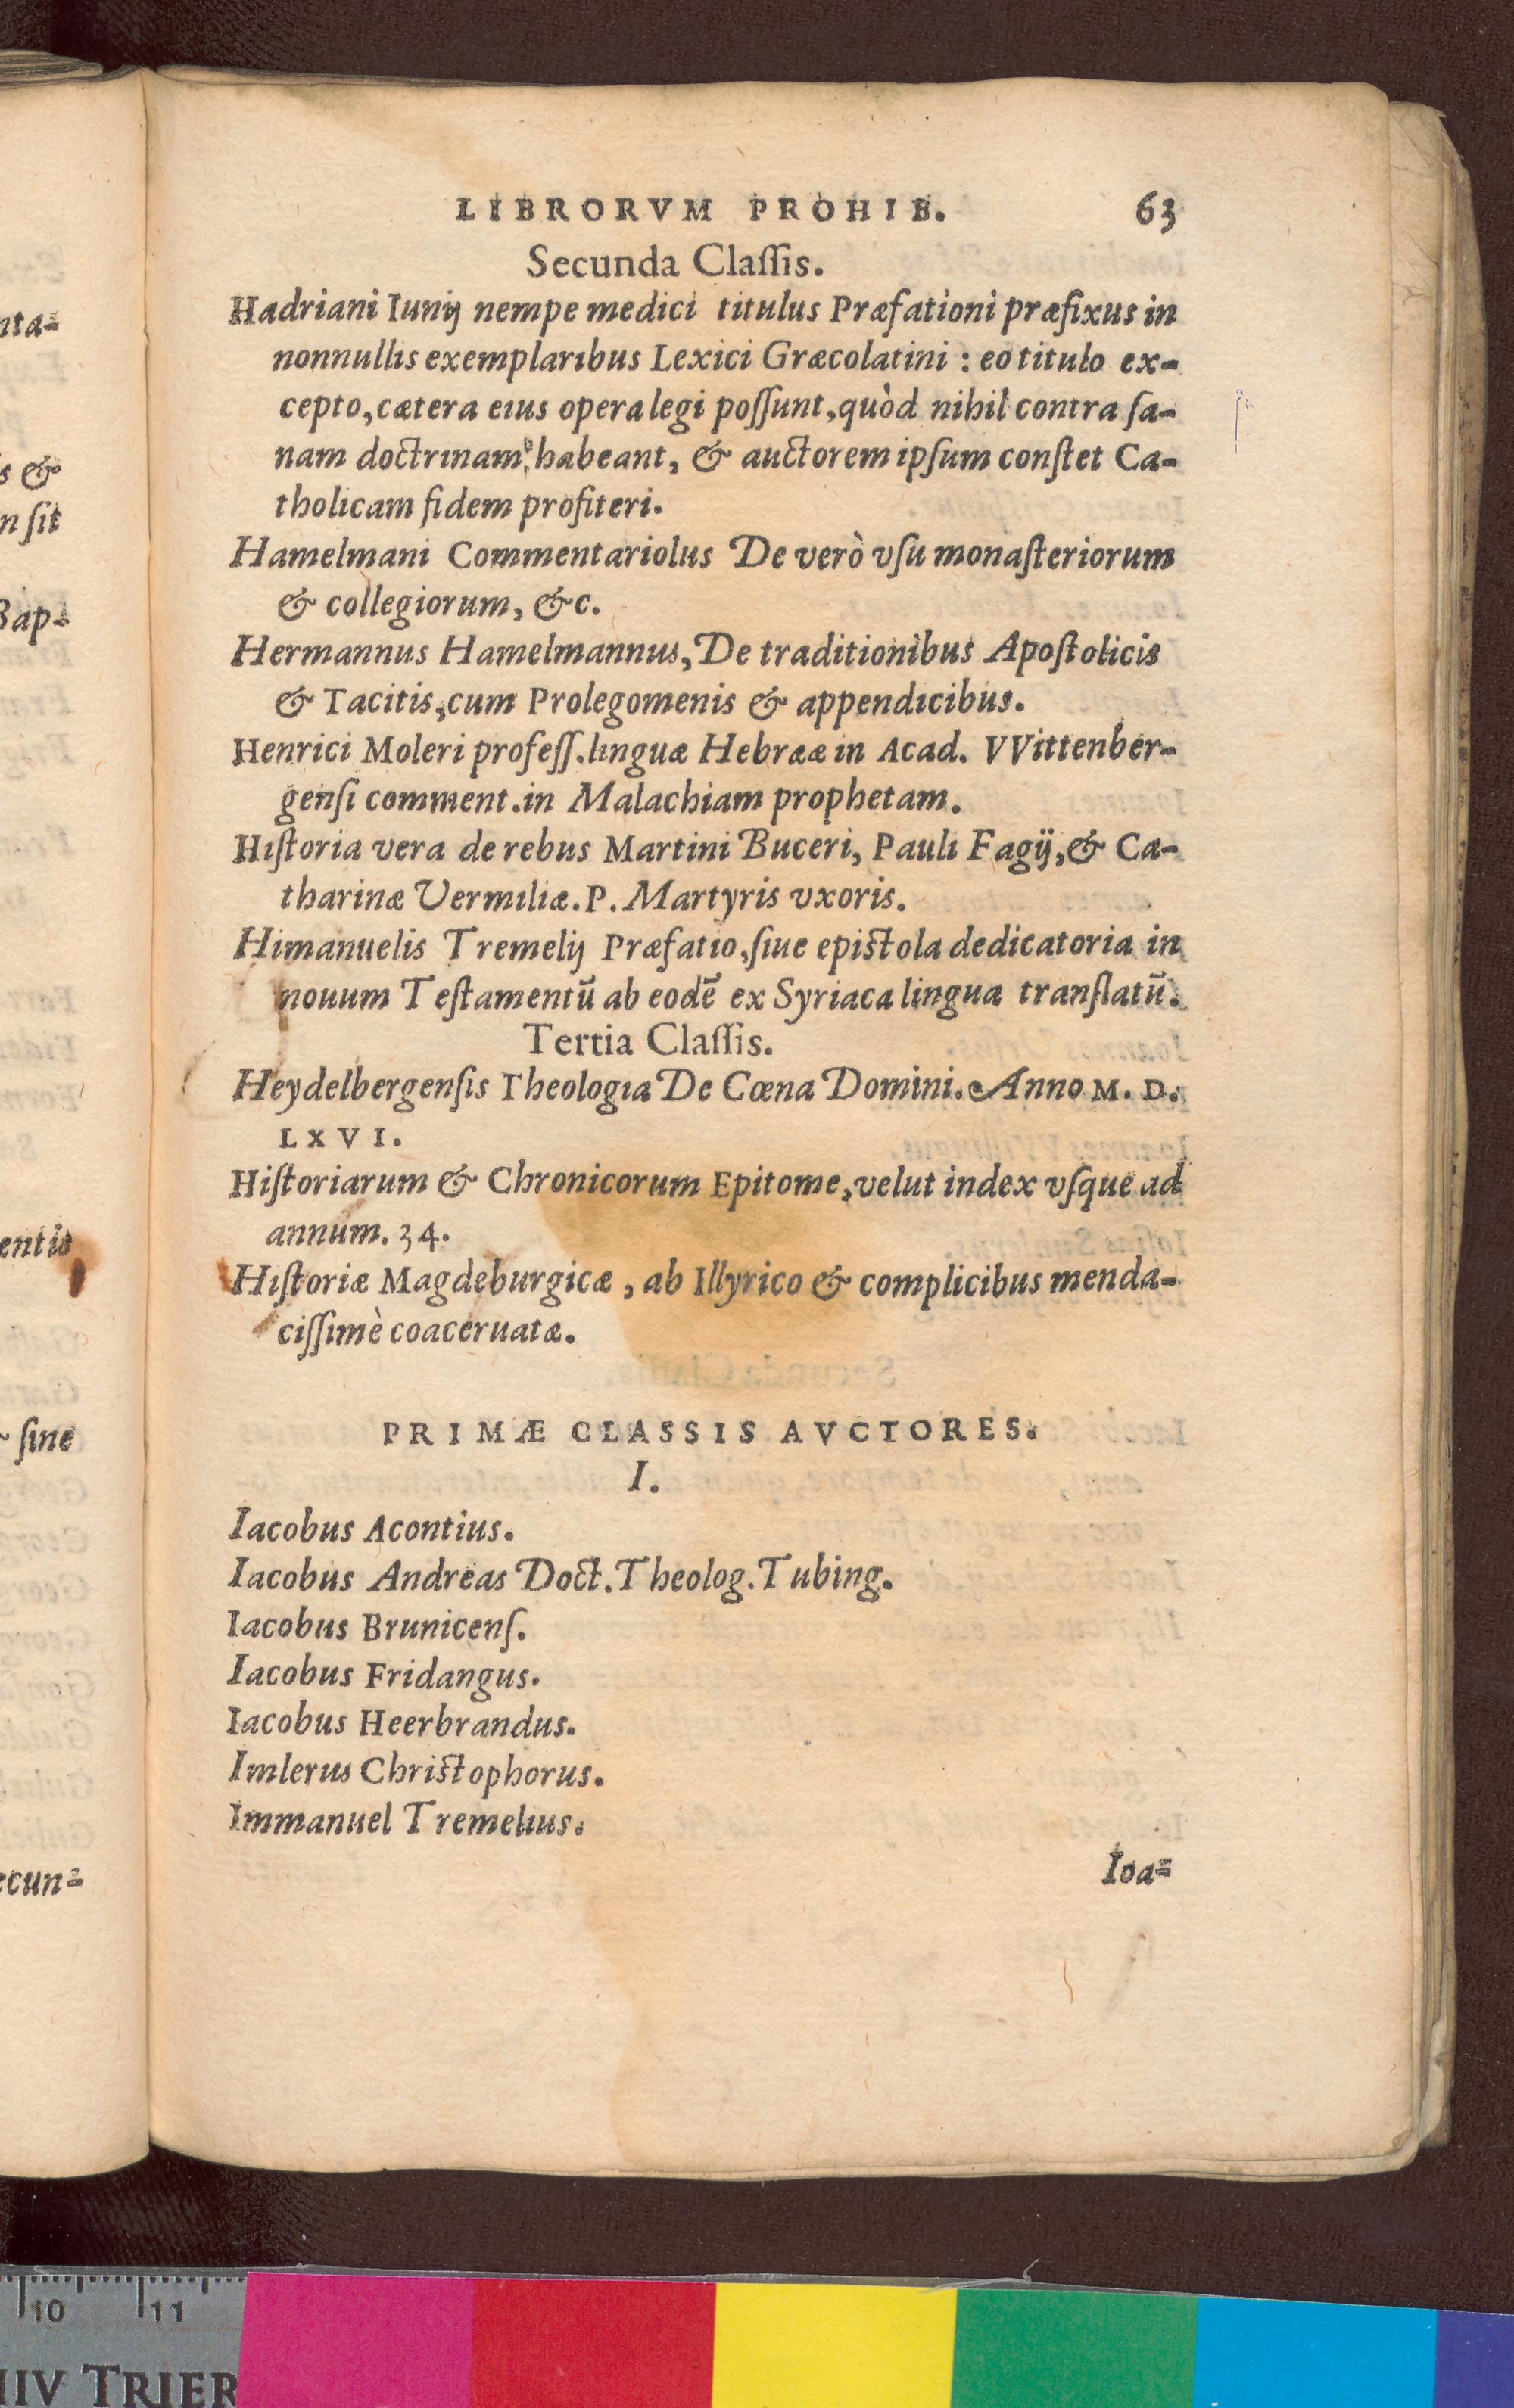 LIBRORVM PROHIB. 63
Secunda Claſſis.
Hadriani Iunij nempe medici titulus Præfationi præfixus in
nonnullis exemplaribus Lexici Græcolatini : eo titulo ex-
cepto, cætera eius opera legi poſſunt, quòd nihil contra ſa-
nam doctrinam habeant, & auctorem ipſum conſtet Ca-
tholicam fidem profiteri.
Hamelmani Commentariolus De verò vſu monaſteriorum
& collegiorum, &c.
Hermannus Hamelmannus, De traditionibus Apoſtolicis
& Tacitis, cum Prolegomenis & appendicibus.
Henrici Moleri profeſſ. linguæ Hebrææ in Acad. VVittenber-
genſi comment. in Malachiam prophetam.
Hiſtoria vera de rebus Martini Buceri, Pauli Fagij, & Ca-
tharinæ Vermiliæ. P. Martyris vxoris.
Himanuelis Tremelij Præfatio, ſiue epiſtola dedicatoria in
nouum Teſtamentū ab eodē ex Syriaca lingua tranſlatū.
Tertia Claſſis.
Heydelbergenſis Theologia De Cœna Domini. Anno M. D.
LXVI.
Hiſtoriarum & Chronicorum Epitome, velut index vſque ad
annum. 34.
Hiſtoriæ Magdeburgicæ, ab Illyrico & complicibus menda-
ciſſimè coaceruatæ.
PRIMÆ CLASSIS AVCTORES.
I.
Iacobus Acontius.
Iacobus Andreas Doct. Theolog. Tubing.
Iacobus Brunicenſ.
Iacobus Fridangus.
Iacobus Heerbrandus.
Imlerus Chriſtophorus.
Immanuel Tremelius.
Ioa-
nta-
s &
n ſit
Bap-
entis
ſine
ecun-
10 11
HIV TRIER